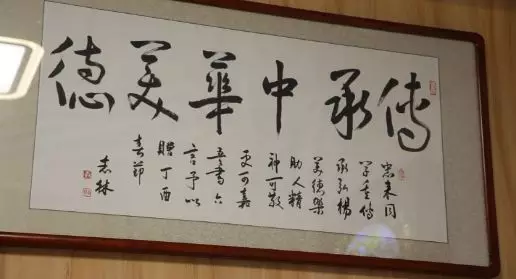 傳承中華美德
忠来同
学重传
承弘楊
美德樂
助人精
神可敬
更可嘉
吾書六
言予以
贈丁酉
春節
志林